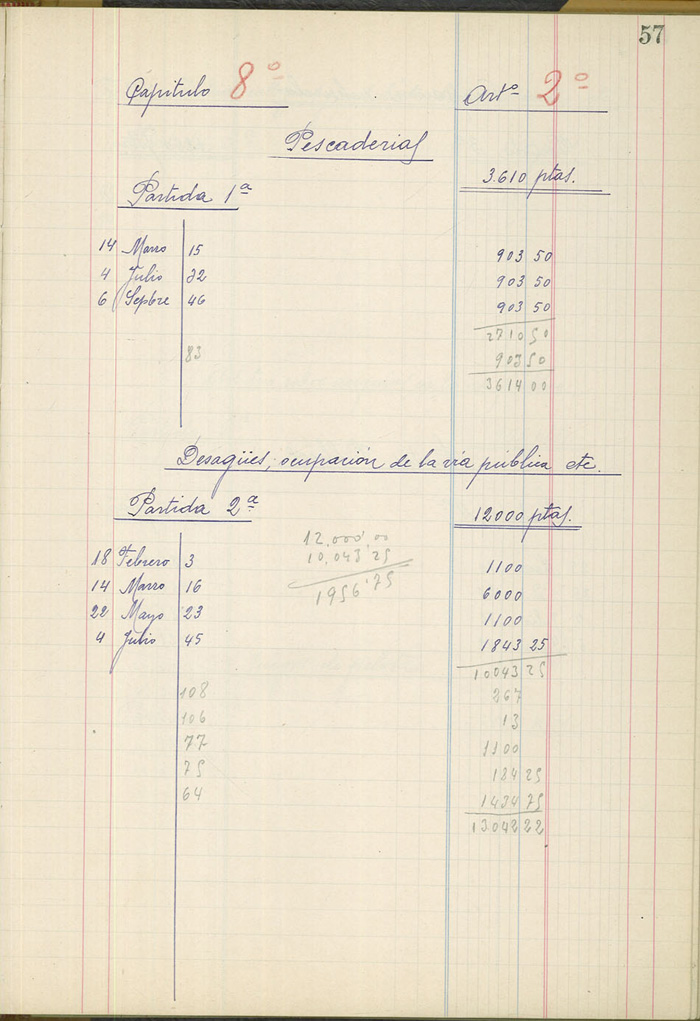 57
Capitulo 8º Artº 2º
Pescaderias
3.610 ptas.
Partida 1ª
14 Marzo 15 903 50
4 Julio 32 903 50
6 Sepbre 46 903 50
2710 50
83 903 50
3614 00
Desagües, ocupación de la via pública etc.
Partida 2ª 12000 ptas.
12.000,00
10.043 25
1956'75
18 Febrero 3 1100
14 Marzo 16 6000
22 Mayo 23 1100
4 Julio 45 1843 25
10.043 25
108 267
106 13
77 1100
75 184 25
64 1434 75
13.042 22